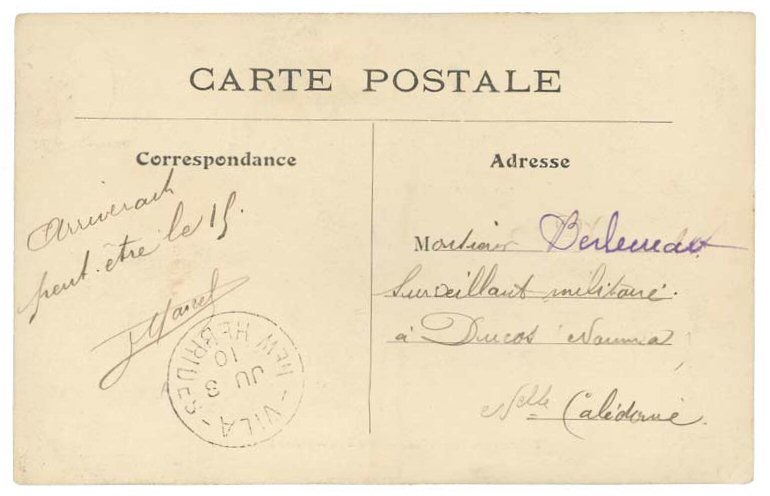 CARTE POSTALE
Correspondance
Adresse
Arriverait
peut-être le 15.
Marcel
Monsieur
Surveillant militaire.
à Ducos Nouméa
Nelle Calédonie.
VILA
NEW HEBRIDES
JU 3
10